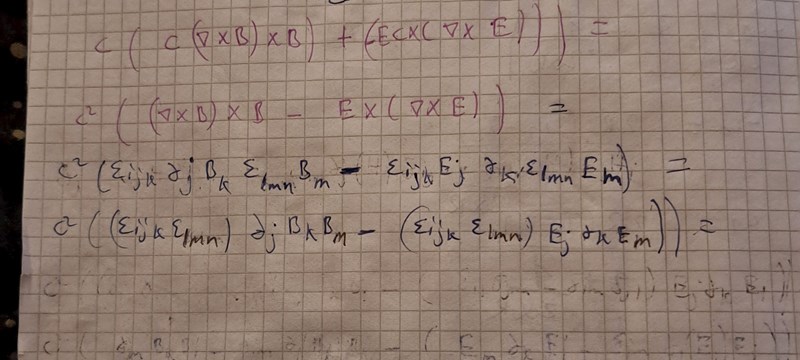 c ( c (∇×B)×B) + (Ec×(∇×E))) =
c² ( (∇×B)×B - E×(∇×E) ) =
c² (Σijk ∂j Bk Σlmn Bm - Σijk Ej ∂k Σlmn Em) =
c² ((Σijk Σlmn) ∂j Bk Bm - (Σijk Σlmn) Ej ∂k Em)) =